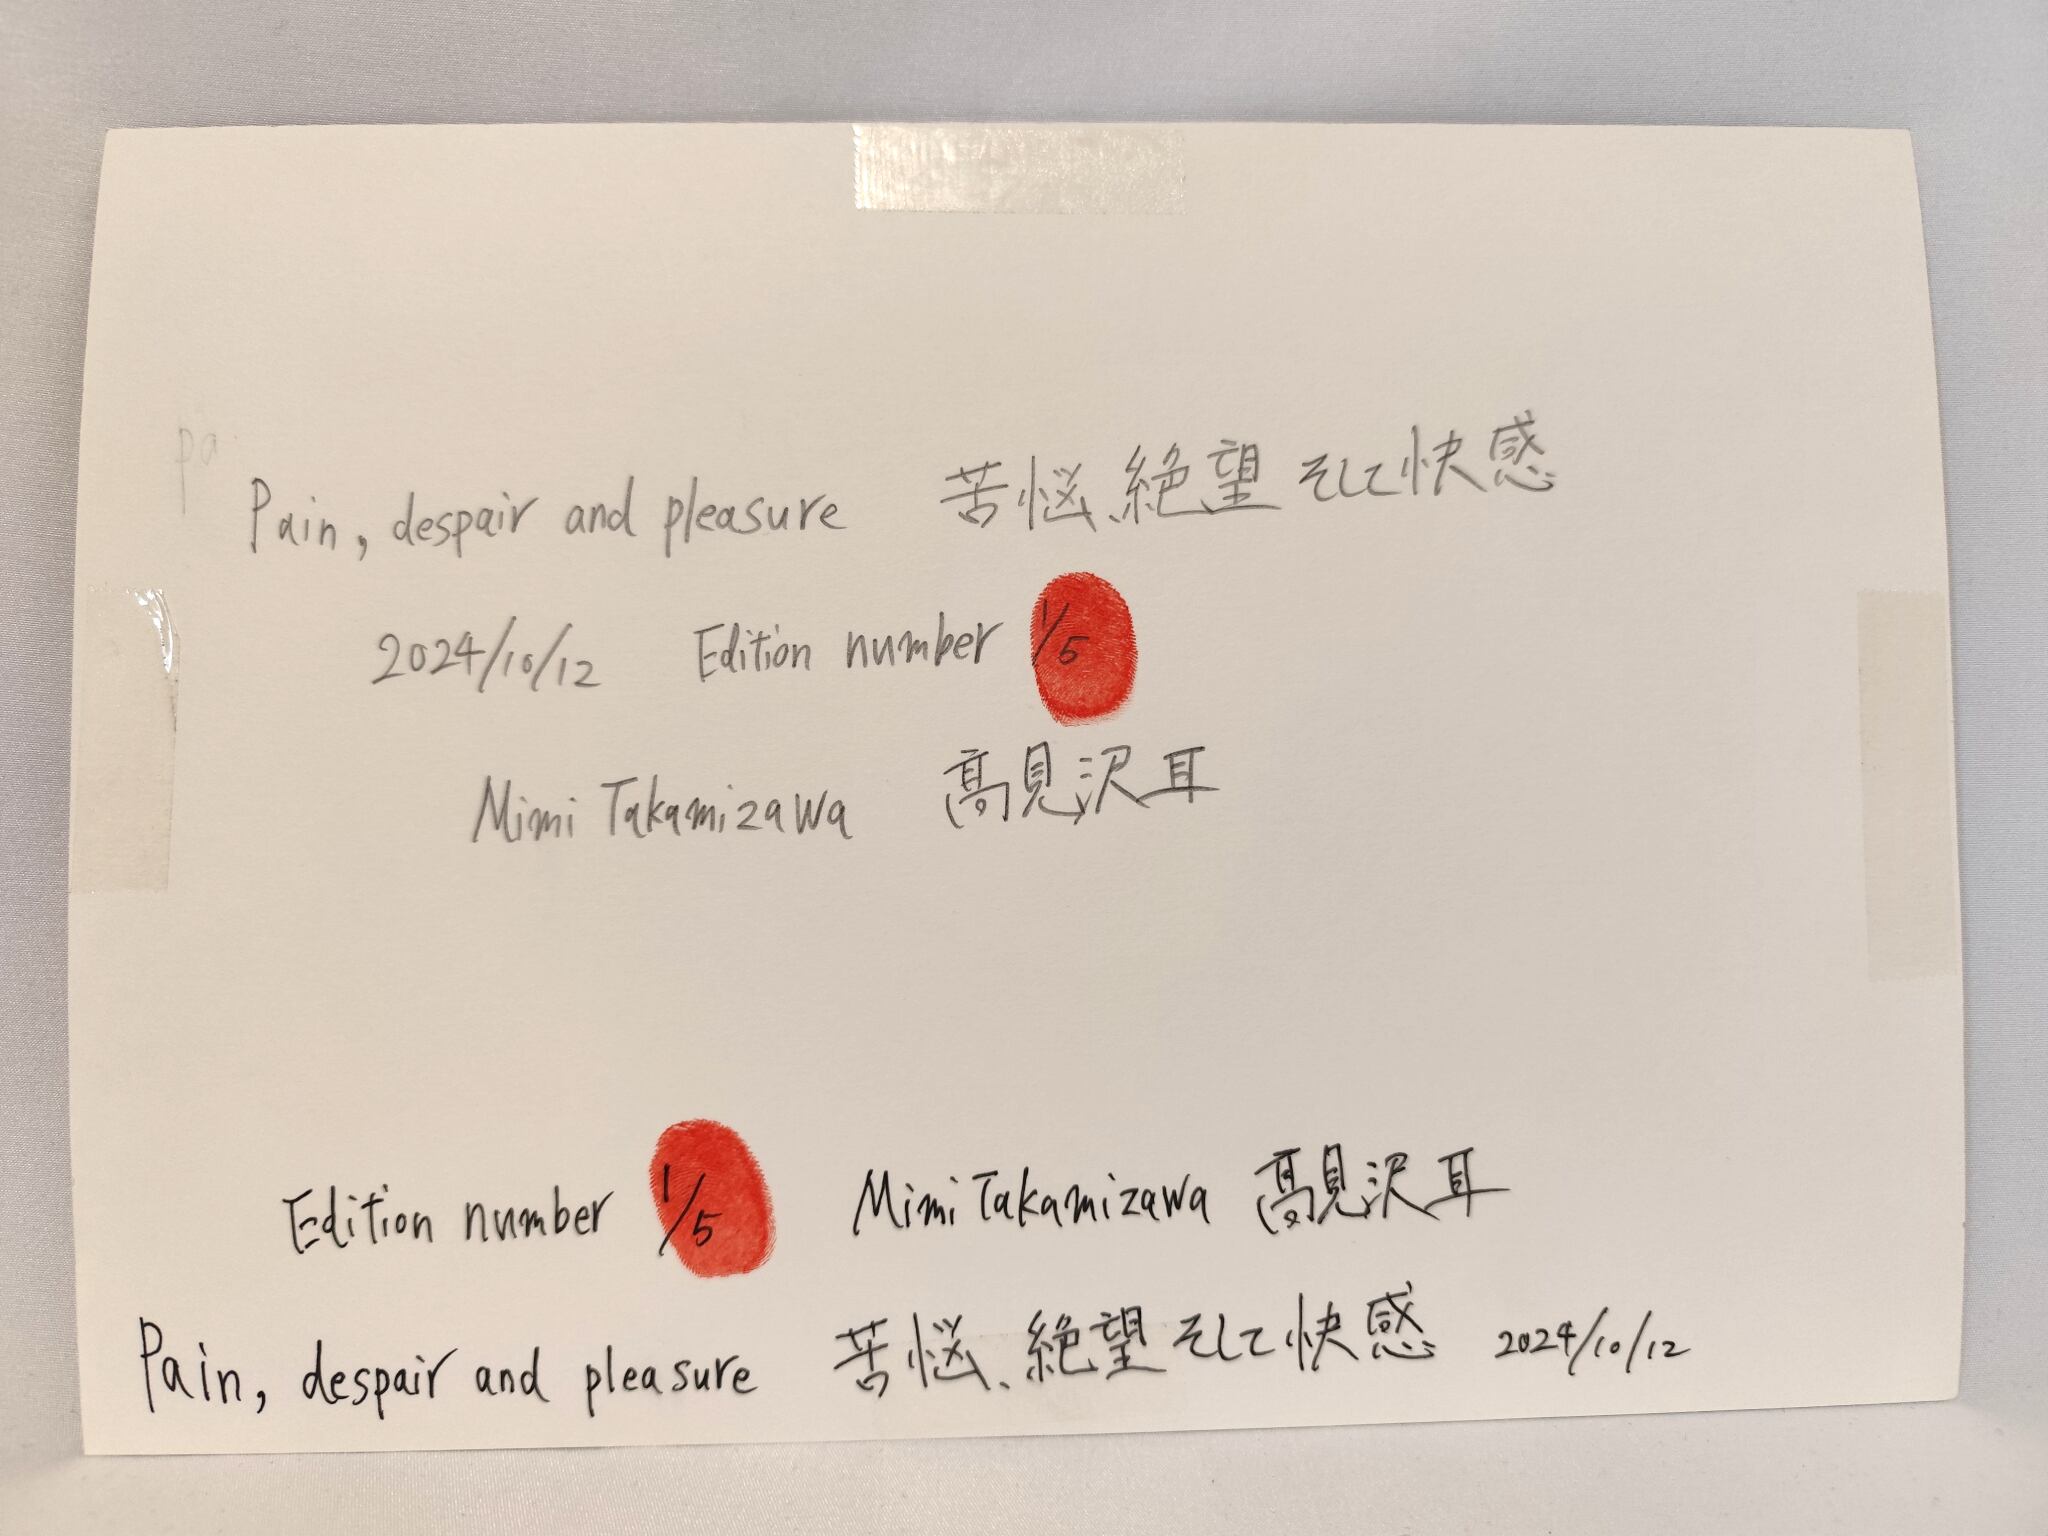 pa
Pain, despair and pleasure 苦悩、絶望そして快感
2024/10/12 Edition number 1/5
Mimi Takamizawa 髙見沢耳
Edition number 1/5 Mimi Takamizawa 髙見沢耳
Pain, despair and pleasure 苦悩、絶望そして快感 2024/10/12